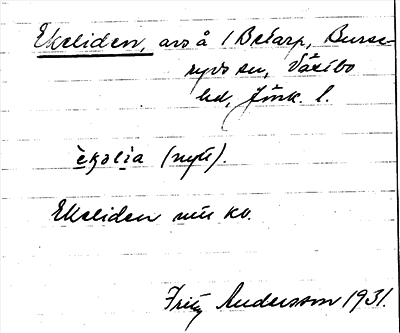 Ekeliden, avs å 1 Betarp, Burse-
ryds sn, Västbo
hd, Jönk. l.
èkəlìa (nytt).
Ekeliden nu kv.
Fritz Andersson 1931.